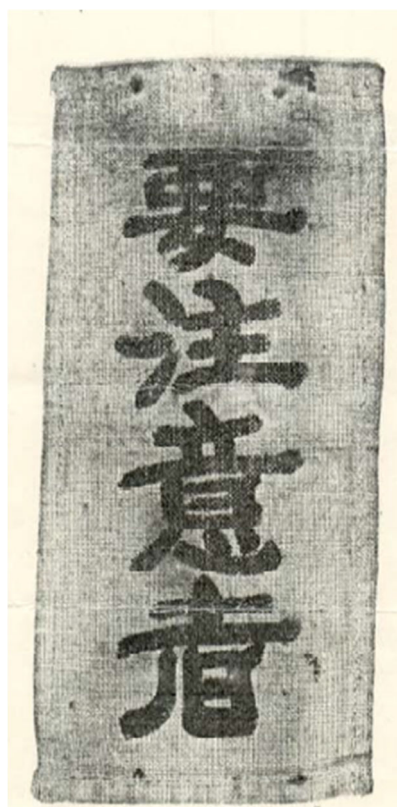 要注意者